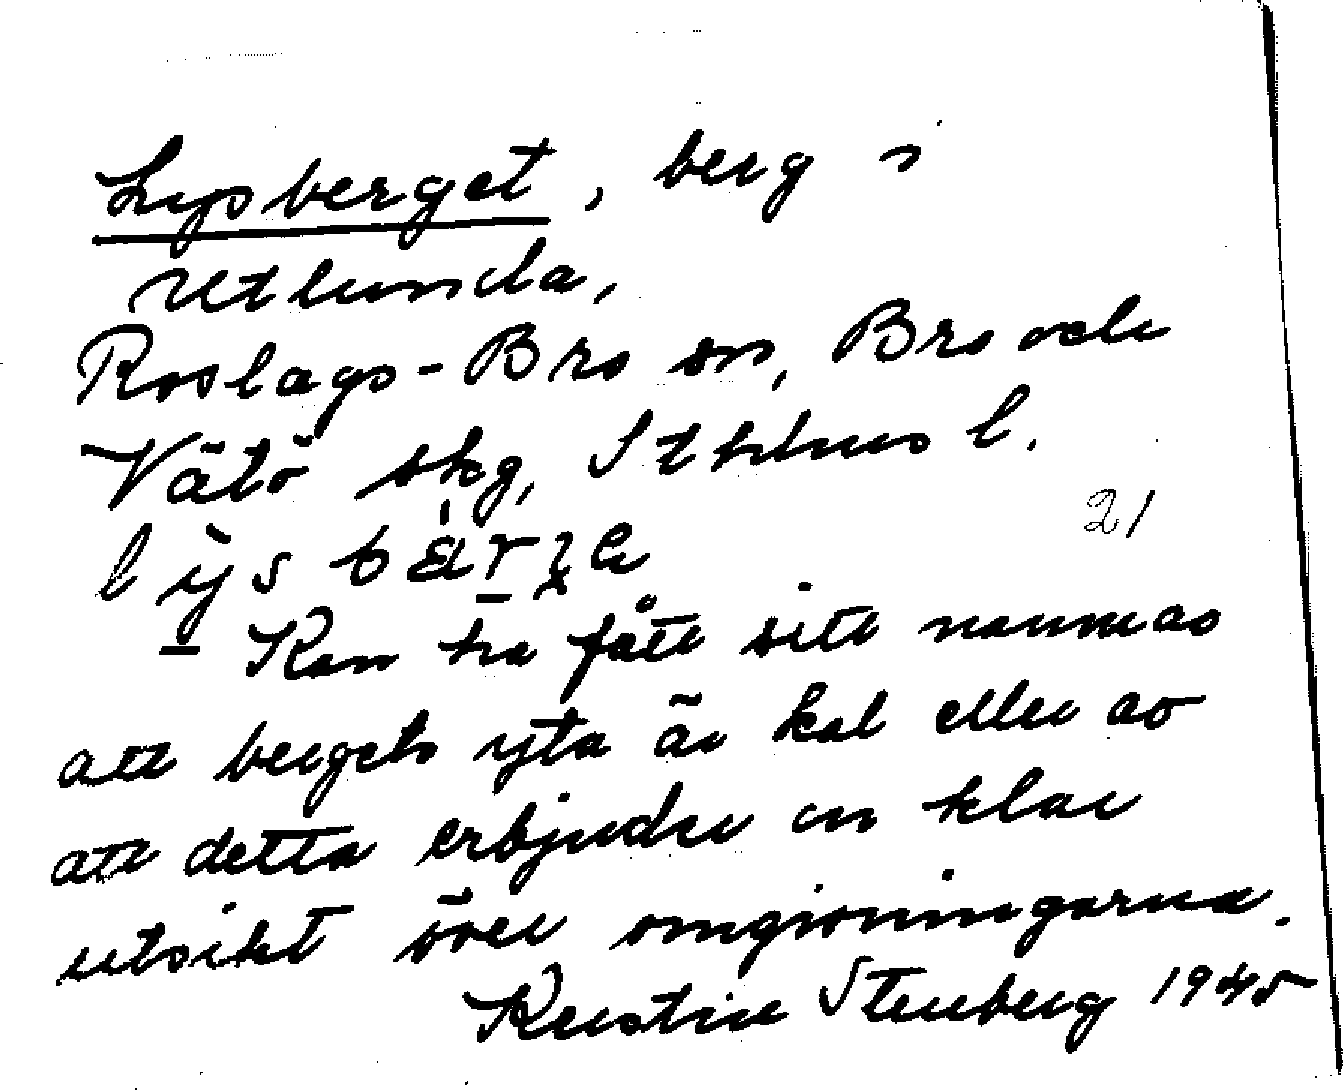 Lysberget, berg i
Utlunda,
Roslags-Bro sn, Bro och
Vätö skg, Sthlms l.
21
Kan ha fått sitt namn av
att bergets yta är kal eller av
att detta erbjuder en klar
utsikt över omgivningarna.
Kerstin Stenberg 1945